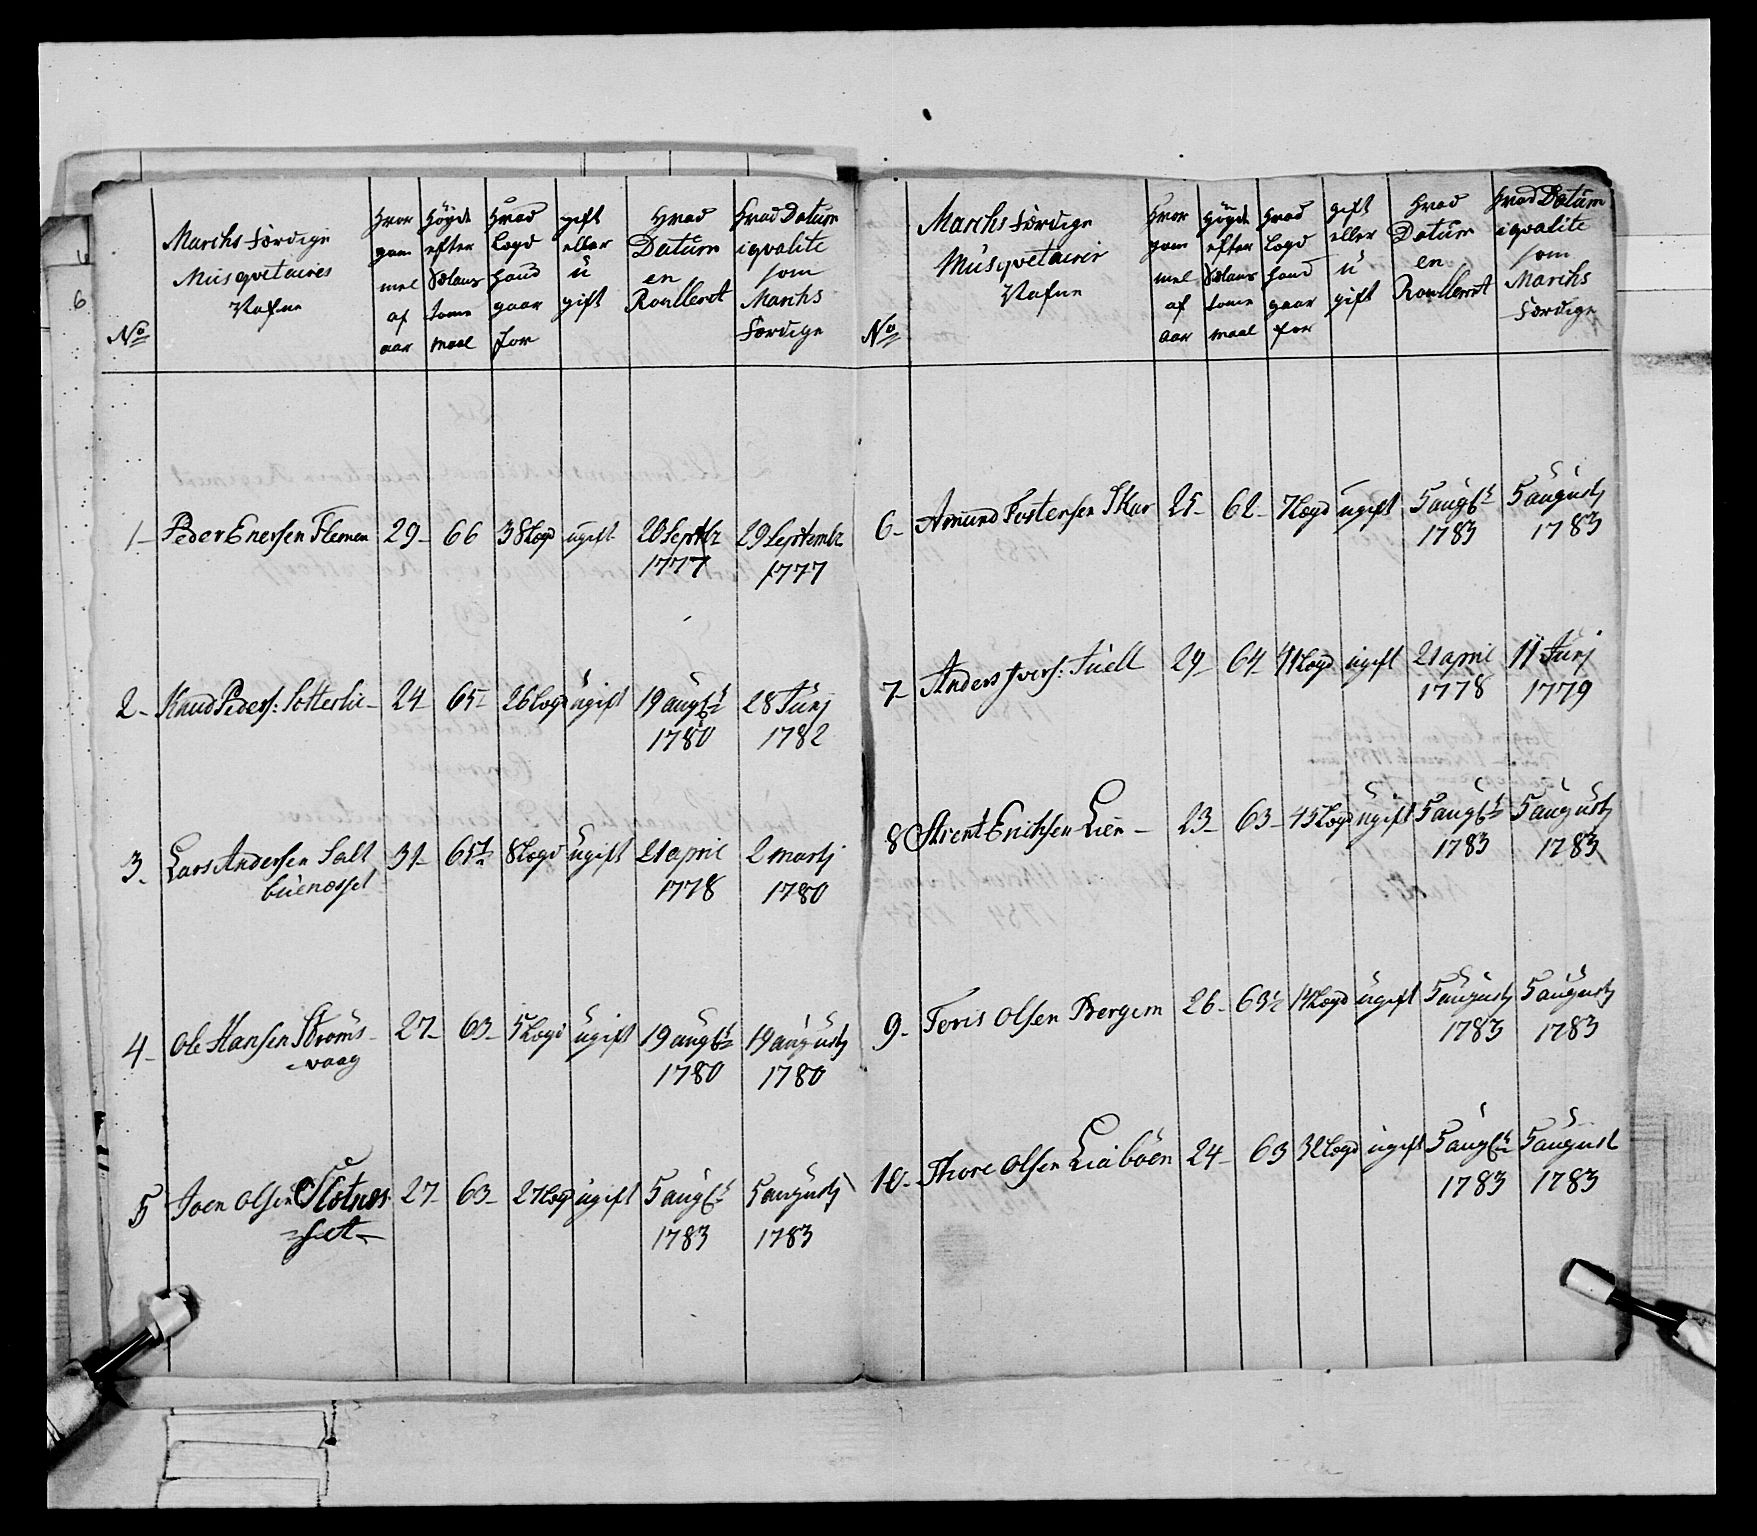 No
Marchs Færdige
Musqvetaires
Nafne
Hvor
gam
mel
af
aar
Høyde
efter
Sælans
tome
maal
Hvad
Lægd
hand
gaar
for
gift
eller
u
gift
Hvad
Datum
en
Roulleret
Hvad Datum
i qvalite
som
Marchs
Færdige
1- Peder Enersen Flemen 29- 66 38 Lægd ugift 20 Septbr 29 Septembr
1777 1777
2- Knud Peders: Sotterlie- 24 65- 26 Lægd ugift 19 augst 28 Junj
1780 1782
3- Lars Andersen Salt 31- 65½ 8 Lægd ugift 21 april 2 martj
buenæsset 1778 1780
4- Ole Hansen Strøms- 27- 63- 5 Lægd ugift 19 augst 19 augustj
-vaag 1780 1780
5 Joen Olsen Slotnes 27- 63- 27 Lægd ugift 5 augst 5 augustj
=set- 1783 1783
No
Marchs Færdige
Musqvetairer
Nafne
Hvor
gam
mel
af
aar
Høyde
efter
Sælans
tome
maal
Hvad
Lægd
hand
gaar
for
gift
eller
u
gift
Hvad
Datum
en
Roulleret
Hvad Datum
i qvalite
som
Marchs
Færdige
6- Amund Fostersen Skar 25- 62- 7 Lægd ugift 5 augst 5 augustj
1783 1783
7- Anders Ivers: Tuell 29- 64 41 Lægd ugift 21 april 11 Junj
1778 1779
8 Strent Erichsen Lien- 23- 63- 45 Lægd ugift 5 augst 5 augustj
1783 1783
9- Toris Olsen Bergem 26- 63½ 14 Lægd ugift 5 augustj 5 augustj
1783 1783
10- Thore Olsen Liabøen 24- 63 32 Lægd ugift 5 augst 5 august
1783 1783